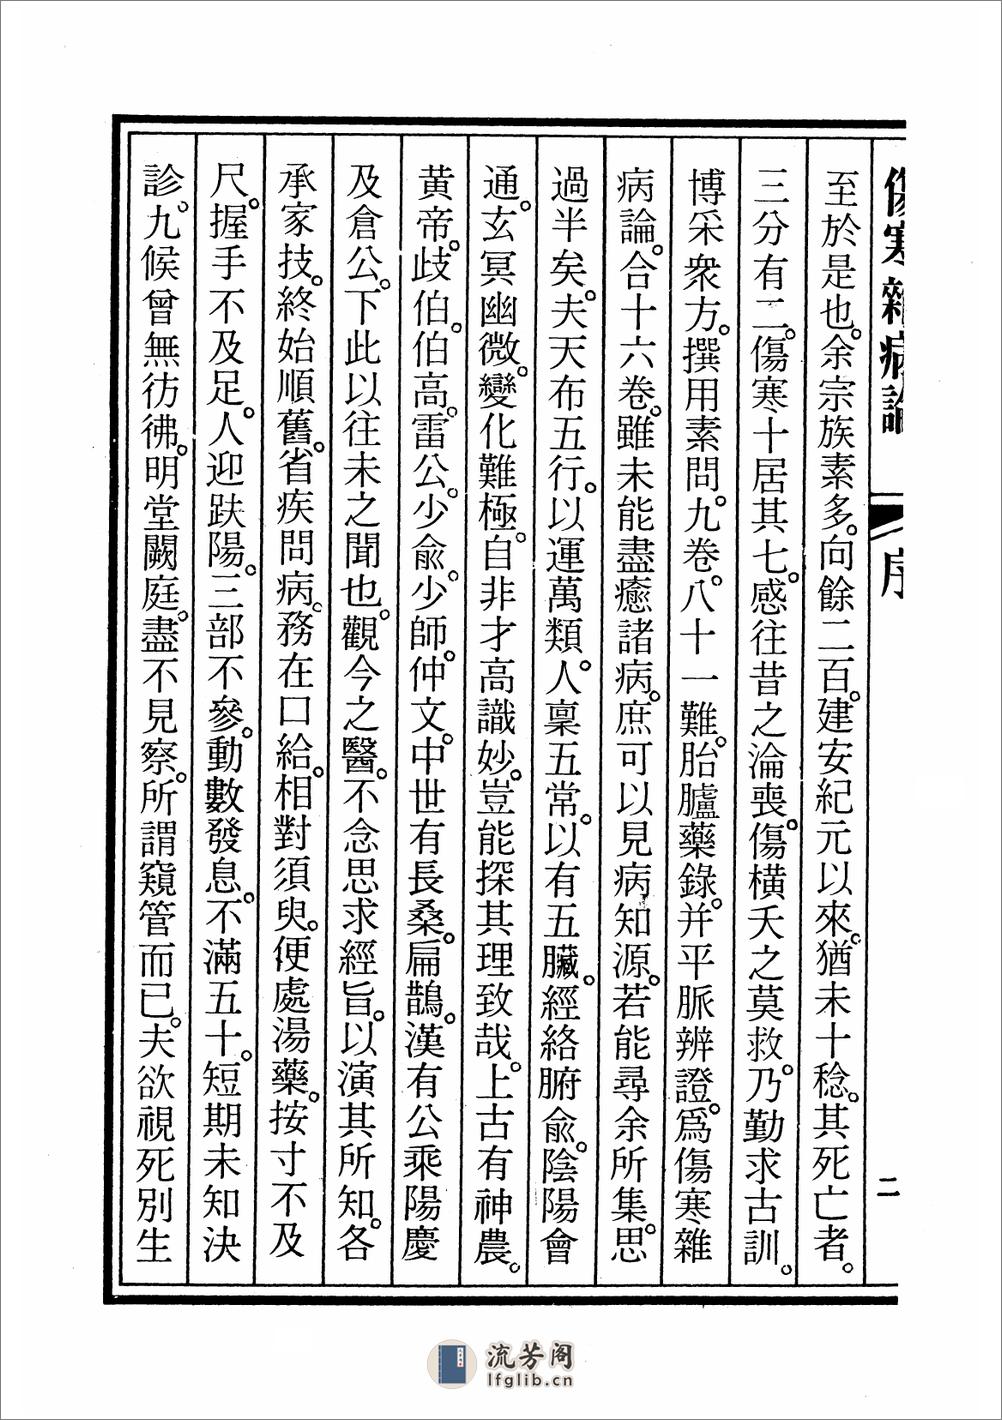 傷寒雜病論 序 二
至於是也。余宗族素多。向餘二百。建安紀元以來。猶未十稔。其死亡者。
三分有二。傷寒十居其七。感往昔之淪喪。傷橫夭之莫救。乃勤求古訓。
博采衆方。撰用素問。九卷。八十一難。胎臚藥錄。并平脈辨證。爲傷寒雜
病論。合十六卷。雖未能盡癒諸病。庶可以見病知源。若能尋余所集。思
過半矣。夫天布五行。以運萬類。人稟五常。以有五臟。經絡腑兪。陰陽會
通。玄冥幽微。變化難極。自非才高識妙。豈能探其理致哉。上古有神農。
黃帝。歧伯。伯高。雷公。少兪。少師。仲文。中世有長桑。扁鵲。漢有公乘陽慶
及倉公。下此以往未之聞也。觀今之醫。不念思求經旨。以演其所知。各
承家技。終始順舊。省疾問病。務在口給。相對須臾。便處湯藥。按寸不及
尺。握手不及足。人迎趺陽。三部不參。動數發息。不滿五十。短期未知決
診。九候曾無彷彿。明堂闕庭。盡不見察。所謂窺管而已。夫欲視死別生
流芳阁
lfglib.cn